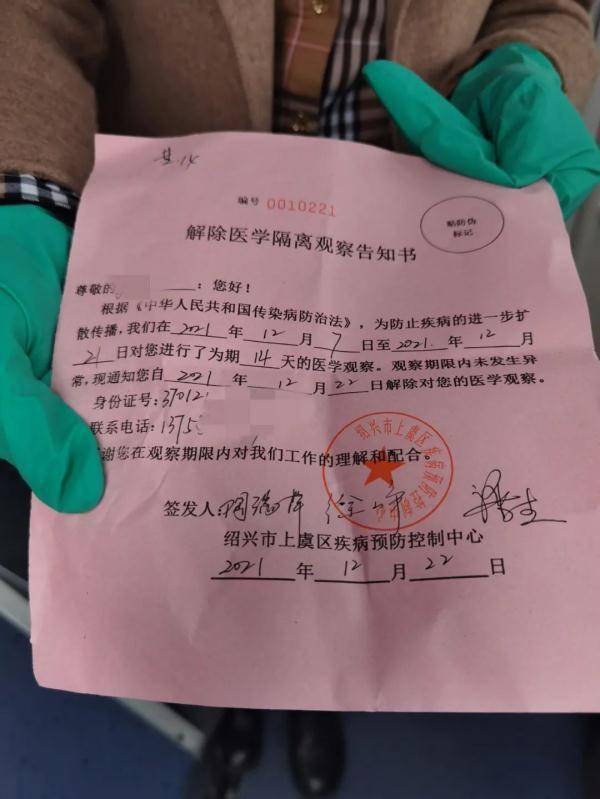 编号 0010221
贴防伪
标记
解除医学隔离观察告知书
尊敬的 ：您好！
根据《中华人民共和国传染病防治法》，为防止疾病的进一步扩
散传播，我们在 2021 年 12 月 7 日至 2021. 年 12 月
21 日对您进行了为期 14 天的医学观察。观察期限内未发生异
常，现通知您自 2021 年 12 月 22 日解除对您的医学观察。
身份证号：37012
联系电话：1375
谢您在观察期限内对我们工作的理解和配合。
绍兴市上虞区疾病预防控制中心
签发人：
绍兴市上虞区疾病预防控制中心
2021 年 12 月 22 日